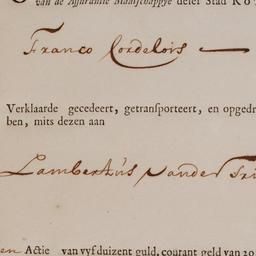 van de Assurantie Maatschappye deser Stad Ro
Franco Cordelois
Verklaarde gecedeert, getransporteert, en opgedr
ben, mits dezen aan
Lambertus vander
en Actie van vyf duizent guld. courant geld van 20